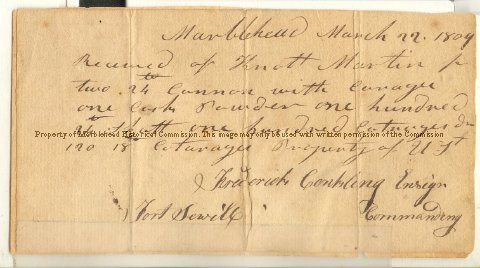 Marblehead March 22. 1809
Received of Knott Martin
two 24 Cannon with Carages
one Cask Powder one hundred
Property of Marblehead Historical Commission. This image may not be used with written permission of the Commission.
120 18 Cotarages Property of U St
Frederick Conkling Ensign
Fort Sewell Commanding